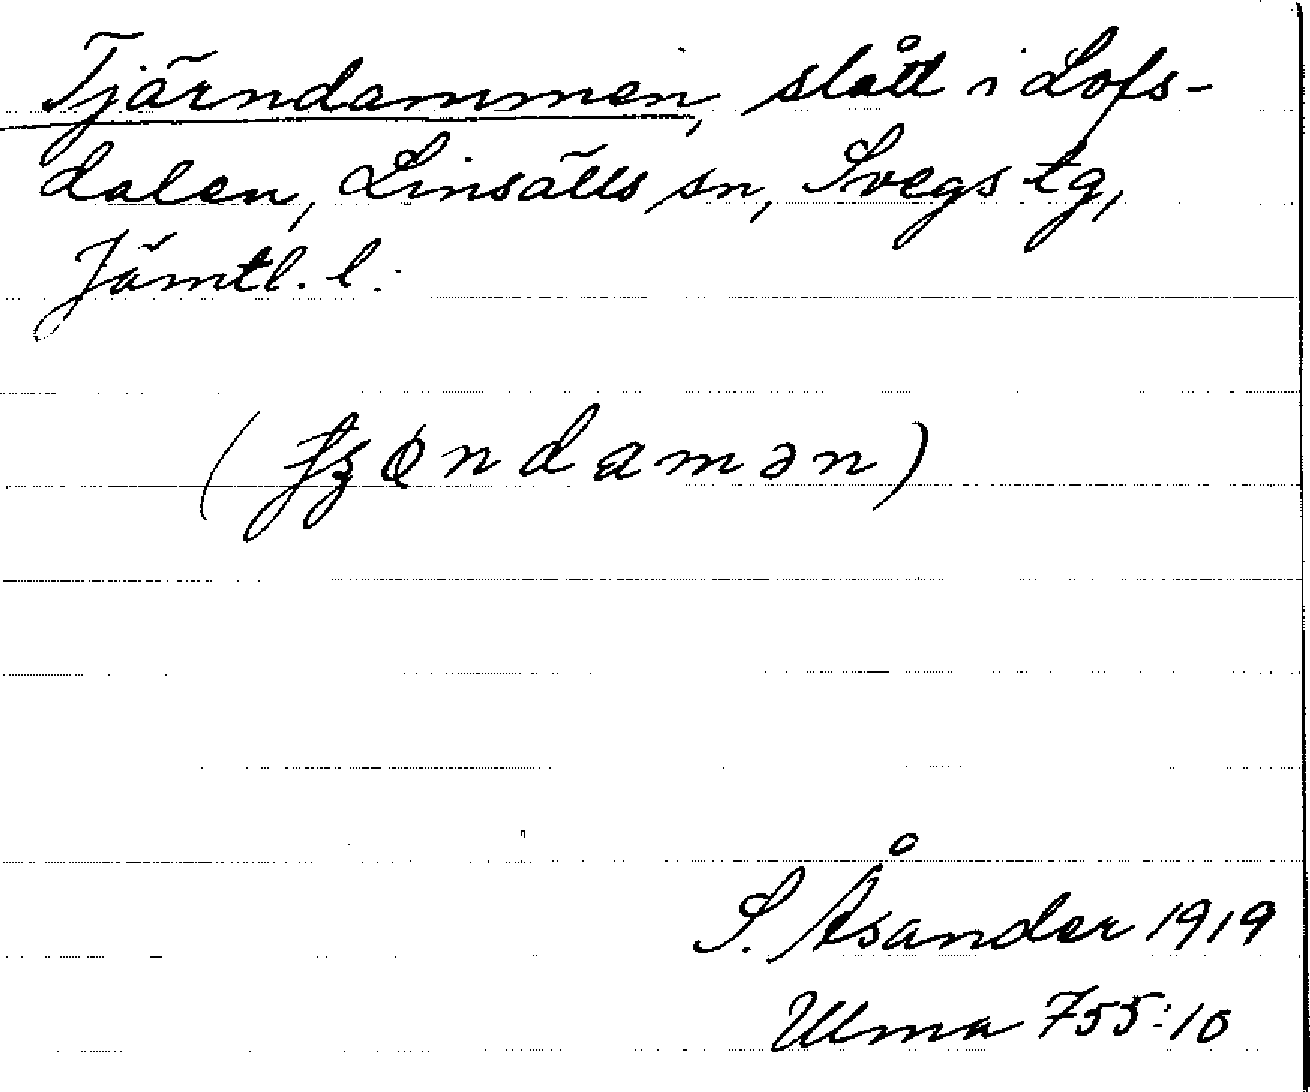 Tjärndammen, slått i Lofs-
dalen, Linsälls sn, Svegs tg,
Jämtl. l.
(ʃʒøndamən)
S. Åsander 1919
Ulma 755:10